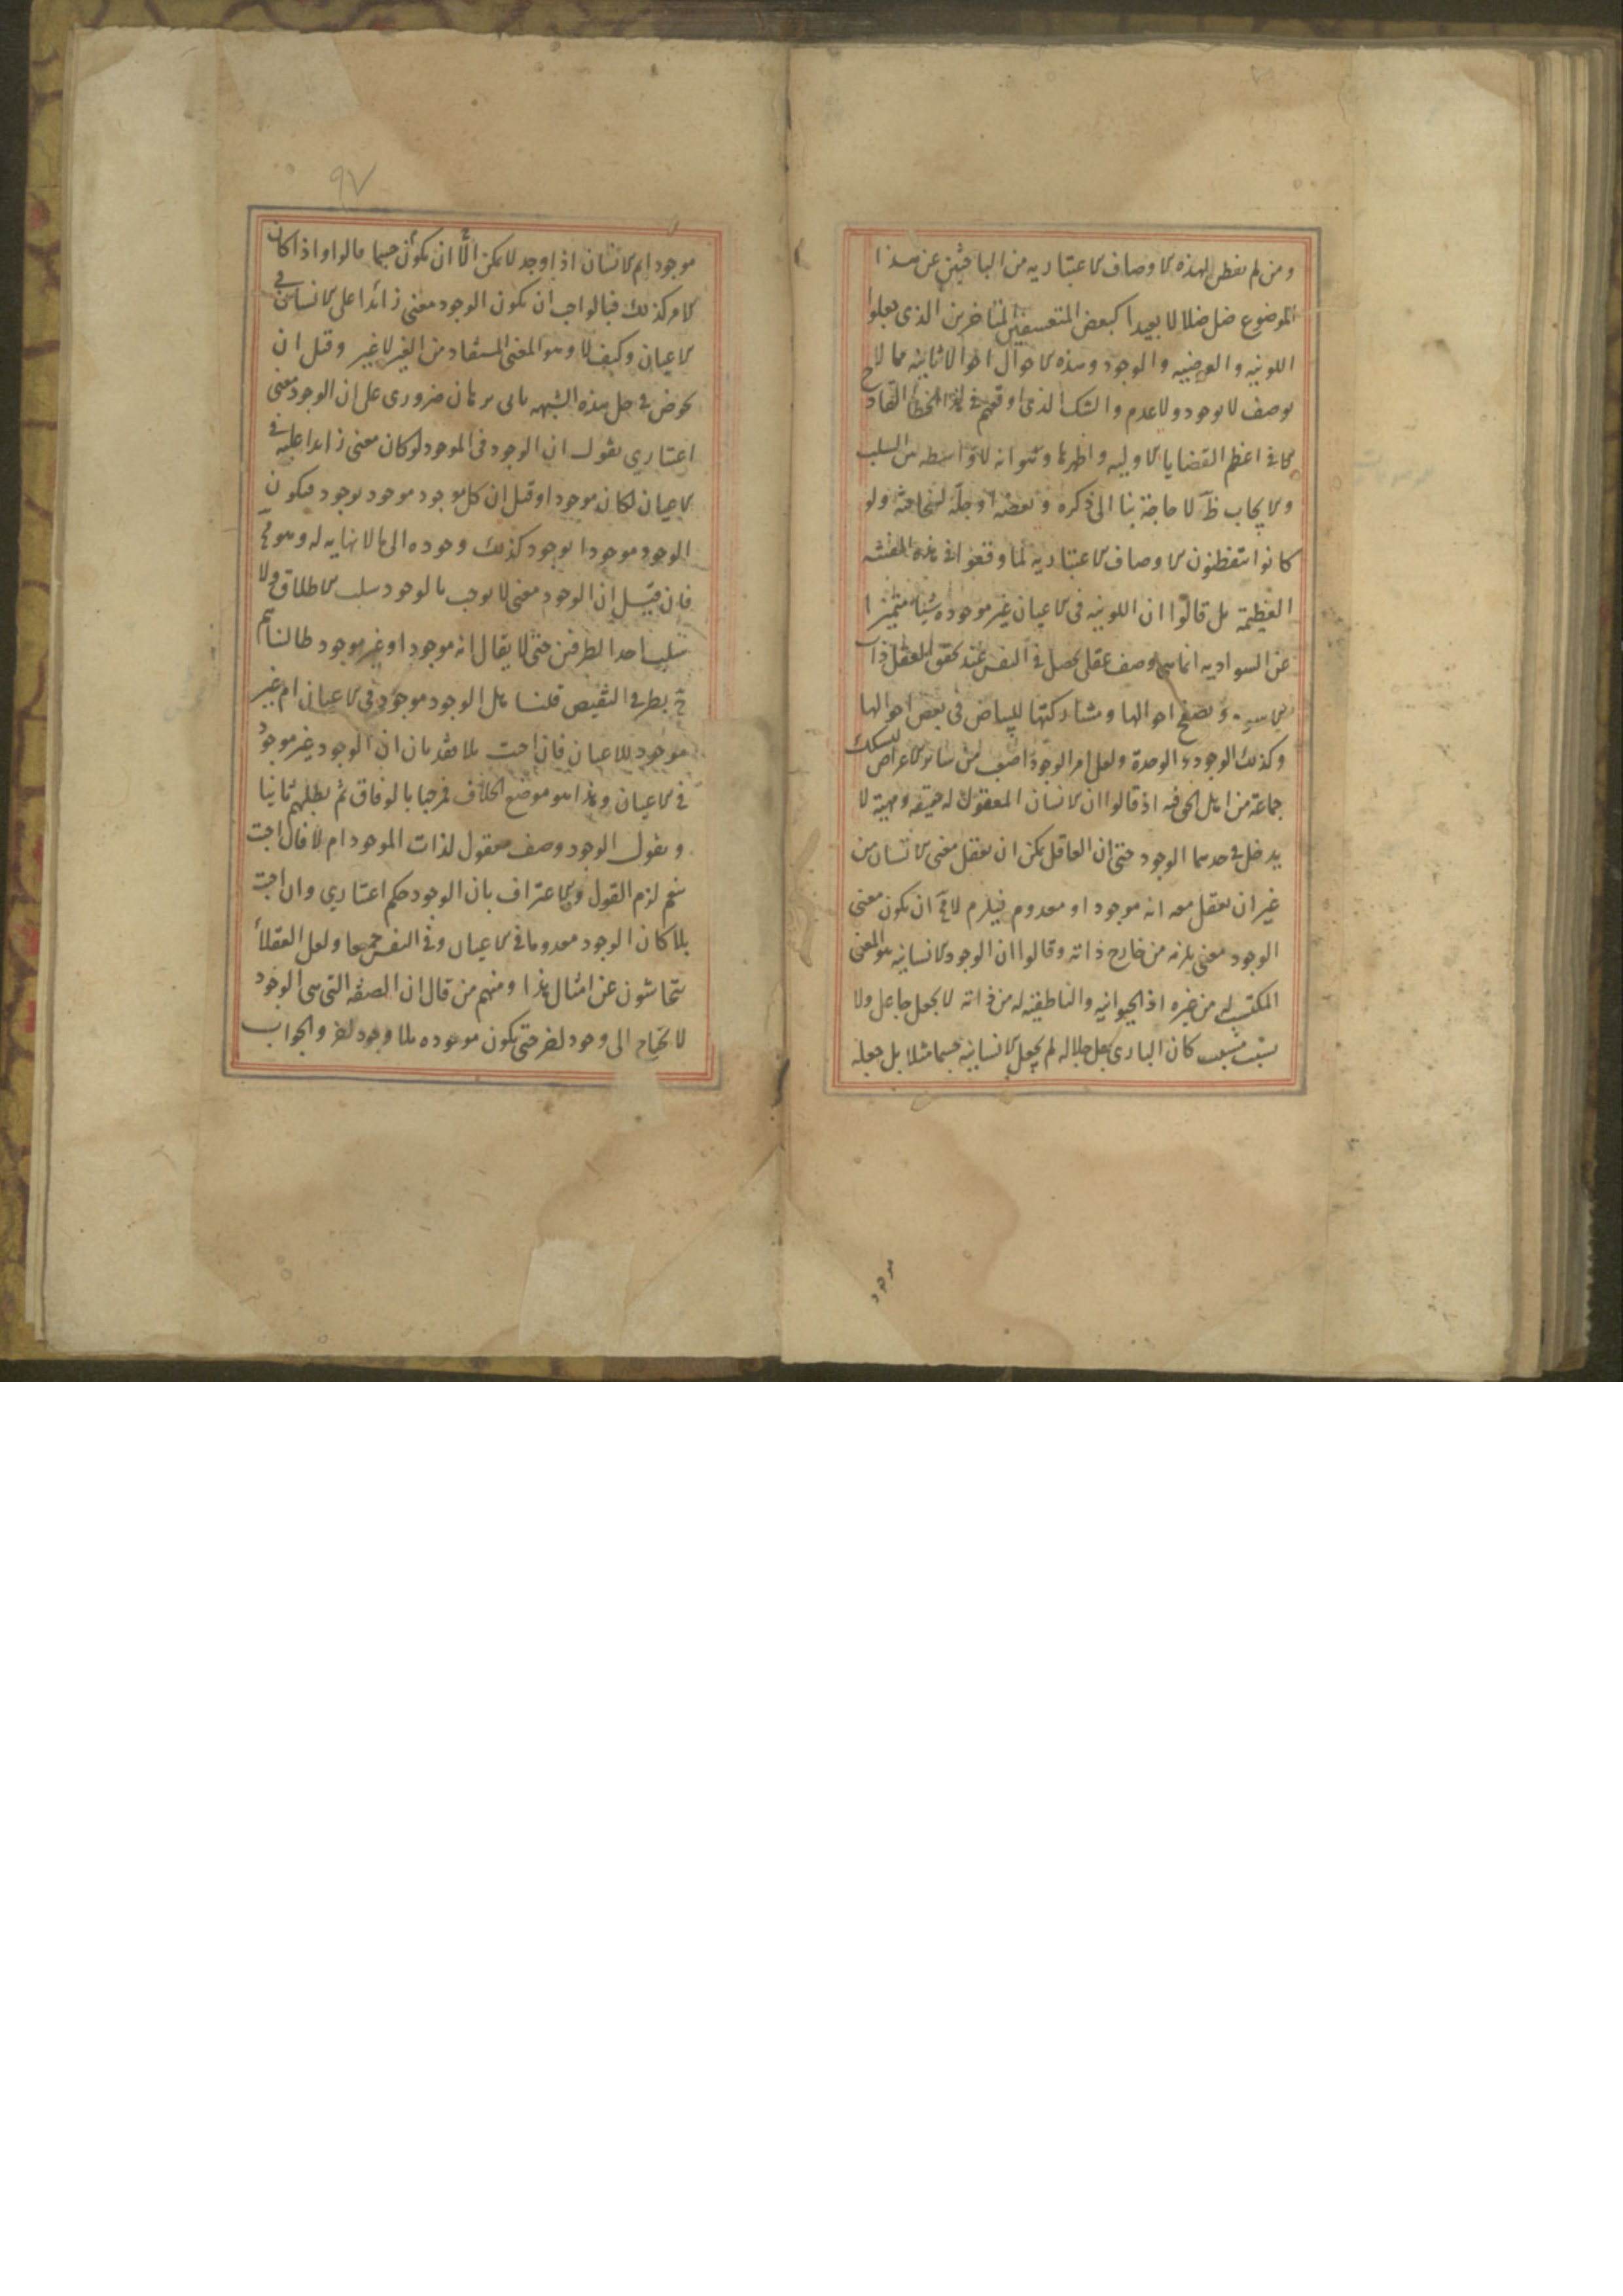 ومن لم يفطن لهذه الاوصاف الاعتبارية من الباحثين عن هذا
الموضوع ضل ضلالا بعيدا كبعض المتعسفين المتاخرين الذى جعلوا
اللونيه والعرضيه والوجود وهذه الاحوال احوالا ثابته مما لا
يوصف لا بوجود ولا عدم والشك الذى اوقعهم فى هذا الخطأ
فى اعظم القضايا الاوليه واظهرها وهو انه لا واسطه بين السلب
والايجاب ظ لا حاجة بنا الى ذكره و ولو
كانوا يتفطنون الاوصاف الاعتباريه لما وقعوا فى هذه
العظيمة بل قالوا ان اللونيه فى الاعيان غير موجوده شيئا متميزا
عن السواديه انما هى وصف عقلى يحصل فى النفس عند تحقق العقل ذات
وتصفح احوالها ومشاركتها للبياض فى بعض احوالها
وكذلك الوجود والوحدة ولعل امر الوجود اصعب من سائر الاعراض
جماعة من اهل الحق فيه اذ قالوا ان الانسان المعقول له حقيقه ومهية لا
يدخل فى حدها الوجود حتى ان العاقل يمكن ان يعقل معنى الانسان من
غير ان يعقل معه انه موجود او معدوم فيلزم لا ان يكون معنى
الوجود معنى يلزمه من خارج ذاته وقالوا ان الوجود للانسانيه هو المعنى
المكتسب له من غيره اذ الحيوانيه والناطقيه له من ذاته لا بجعل جاعل ولا
بسبب مسبب كان البارى جل جلاله لم يجعل الانسانيه جسما مثلا بل جعله
موجود
۹۷
موجودا ثم الانسان اذا وجد لا يمكن الا ان يكون جسما قالوا واذا كان
الامر كذلك فبالواجب ان يكون الوجود معنى زائدا على الانسان فى
الاعيان وكيف لا وهو المعنى المستفاد من الغير لا غير وقبل ان
نخوض فى حل هذه الشبهه ناتى ببرهان ضرورى على ان الوجود معنى
اعتبارى نقول ان الوجود فى الموجود لو كان معنى زائدا عليه فى
الاعيان لكان موجودا وقيل ان كل موجود موجود بوجود فيكون
الوجود موجودا بوجود كذلك وجوده الى ما لا نهايه له وهو مح
فان قيل ان الوجود معنى لا يوصف بالوجود سلب الاطلاق ولا
سلب احد الطرفين حتى لا يقال انه موجود او غير موجود طالبناهم
ح بطرفى النقيض قلنا هل الوجود موجود فى الاعيان ام غير
موجود للاعيان فان اجبت بلا فقد بان ان الوجود غير موجود
فى الاعيان وهذا هو موضع الخلاف فمرحبا بالوفاق ثم نطلبهم ثانيا
ونقول الوجود وصف معقول لذات الموجود ام لا فان اجبت
نعم لزم القول والاعتراف بان الوجود حكم اعتبارى وان اجبت
بلا كان الوجود معدوما فى الاعيان وفى النفس جميعا ولعل العقلاء
يتحاشون عن امثال هذا ومنهم من قال ان الصفه التى هى الوجود
لا تحتاج الى وجود اخر حتى تكون موجوده بلا وجود اخر والجواب